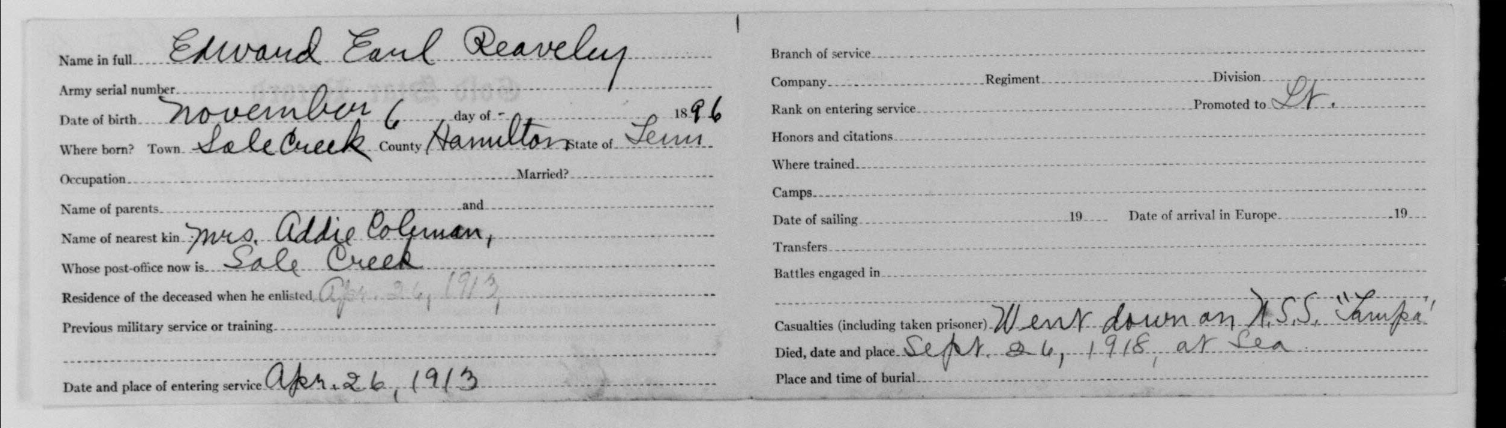 Name in full Edward Earl Reaveley
Army serial number
Date of birth November 6 day of - 1896
Where born? Town Sale Creek County Hamilton State of Tenn
Occupation Married?
Name of parents and
Name of nearest kin Mrs. Addie Coleman,
Whose post-office now is Sale Creek
Residence of the deceased when he enlisted Apr. 26, 1913
Previous military service or training
Date and place of entering service Apr. 26, 1913
Branch of service
Company Regiment Division
Rank on entering service Promoted to Lt.
Honors and citations
Where trained
Camps
Date of sailing 19 Date of arrival in Europe 19
Transfers
Battles engaged in
Casualties (including taken prisoner) Went down on U.S.S. "Tampa"
Died, date and place Sept. 26, 1918, at Sea
Place and time of burial